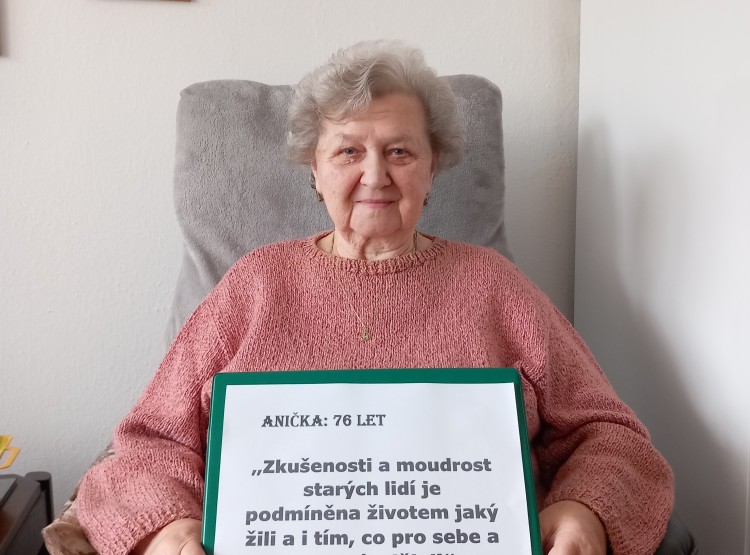 ANIČKA: 76 LET
„Zkušenosti a moudrost
starých lidí je
podmíněna životem jaký
žili a i tím, co pro sebe a